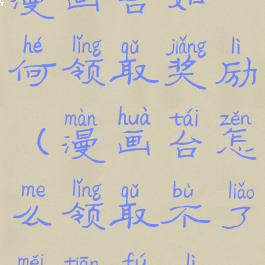 漫画台如
hé lǐng qǔ jiǎng lì
何领取奖励
màn huà tái zěn
（漫画台怎
me lǐng qǔ bù liǎo
么领取不了
měi tiān fú lì